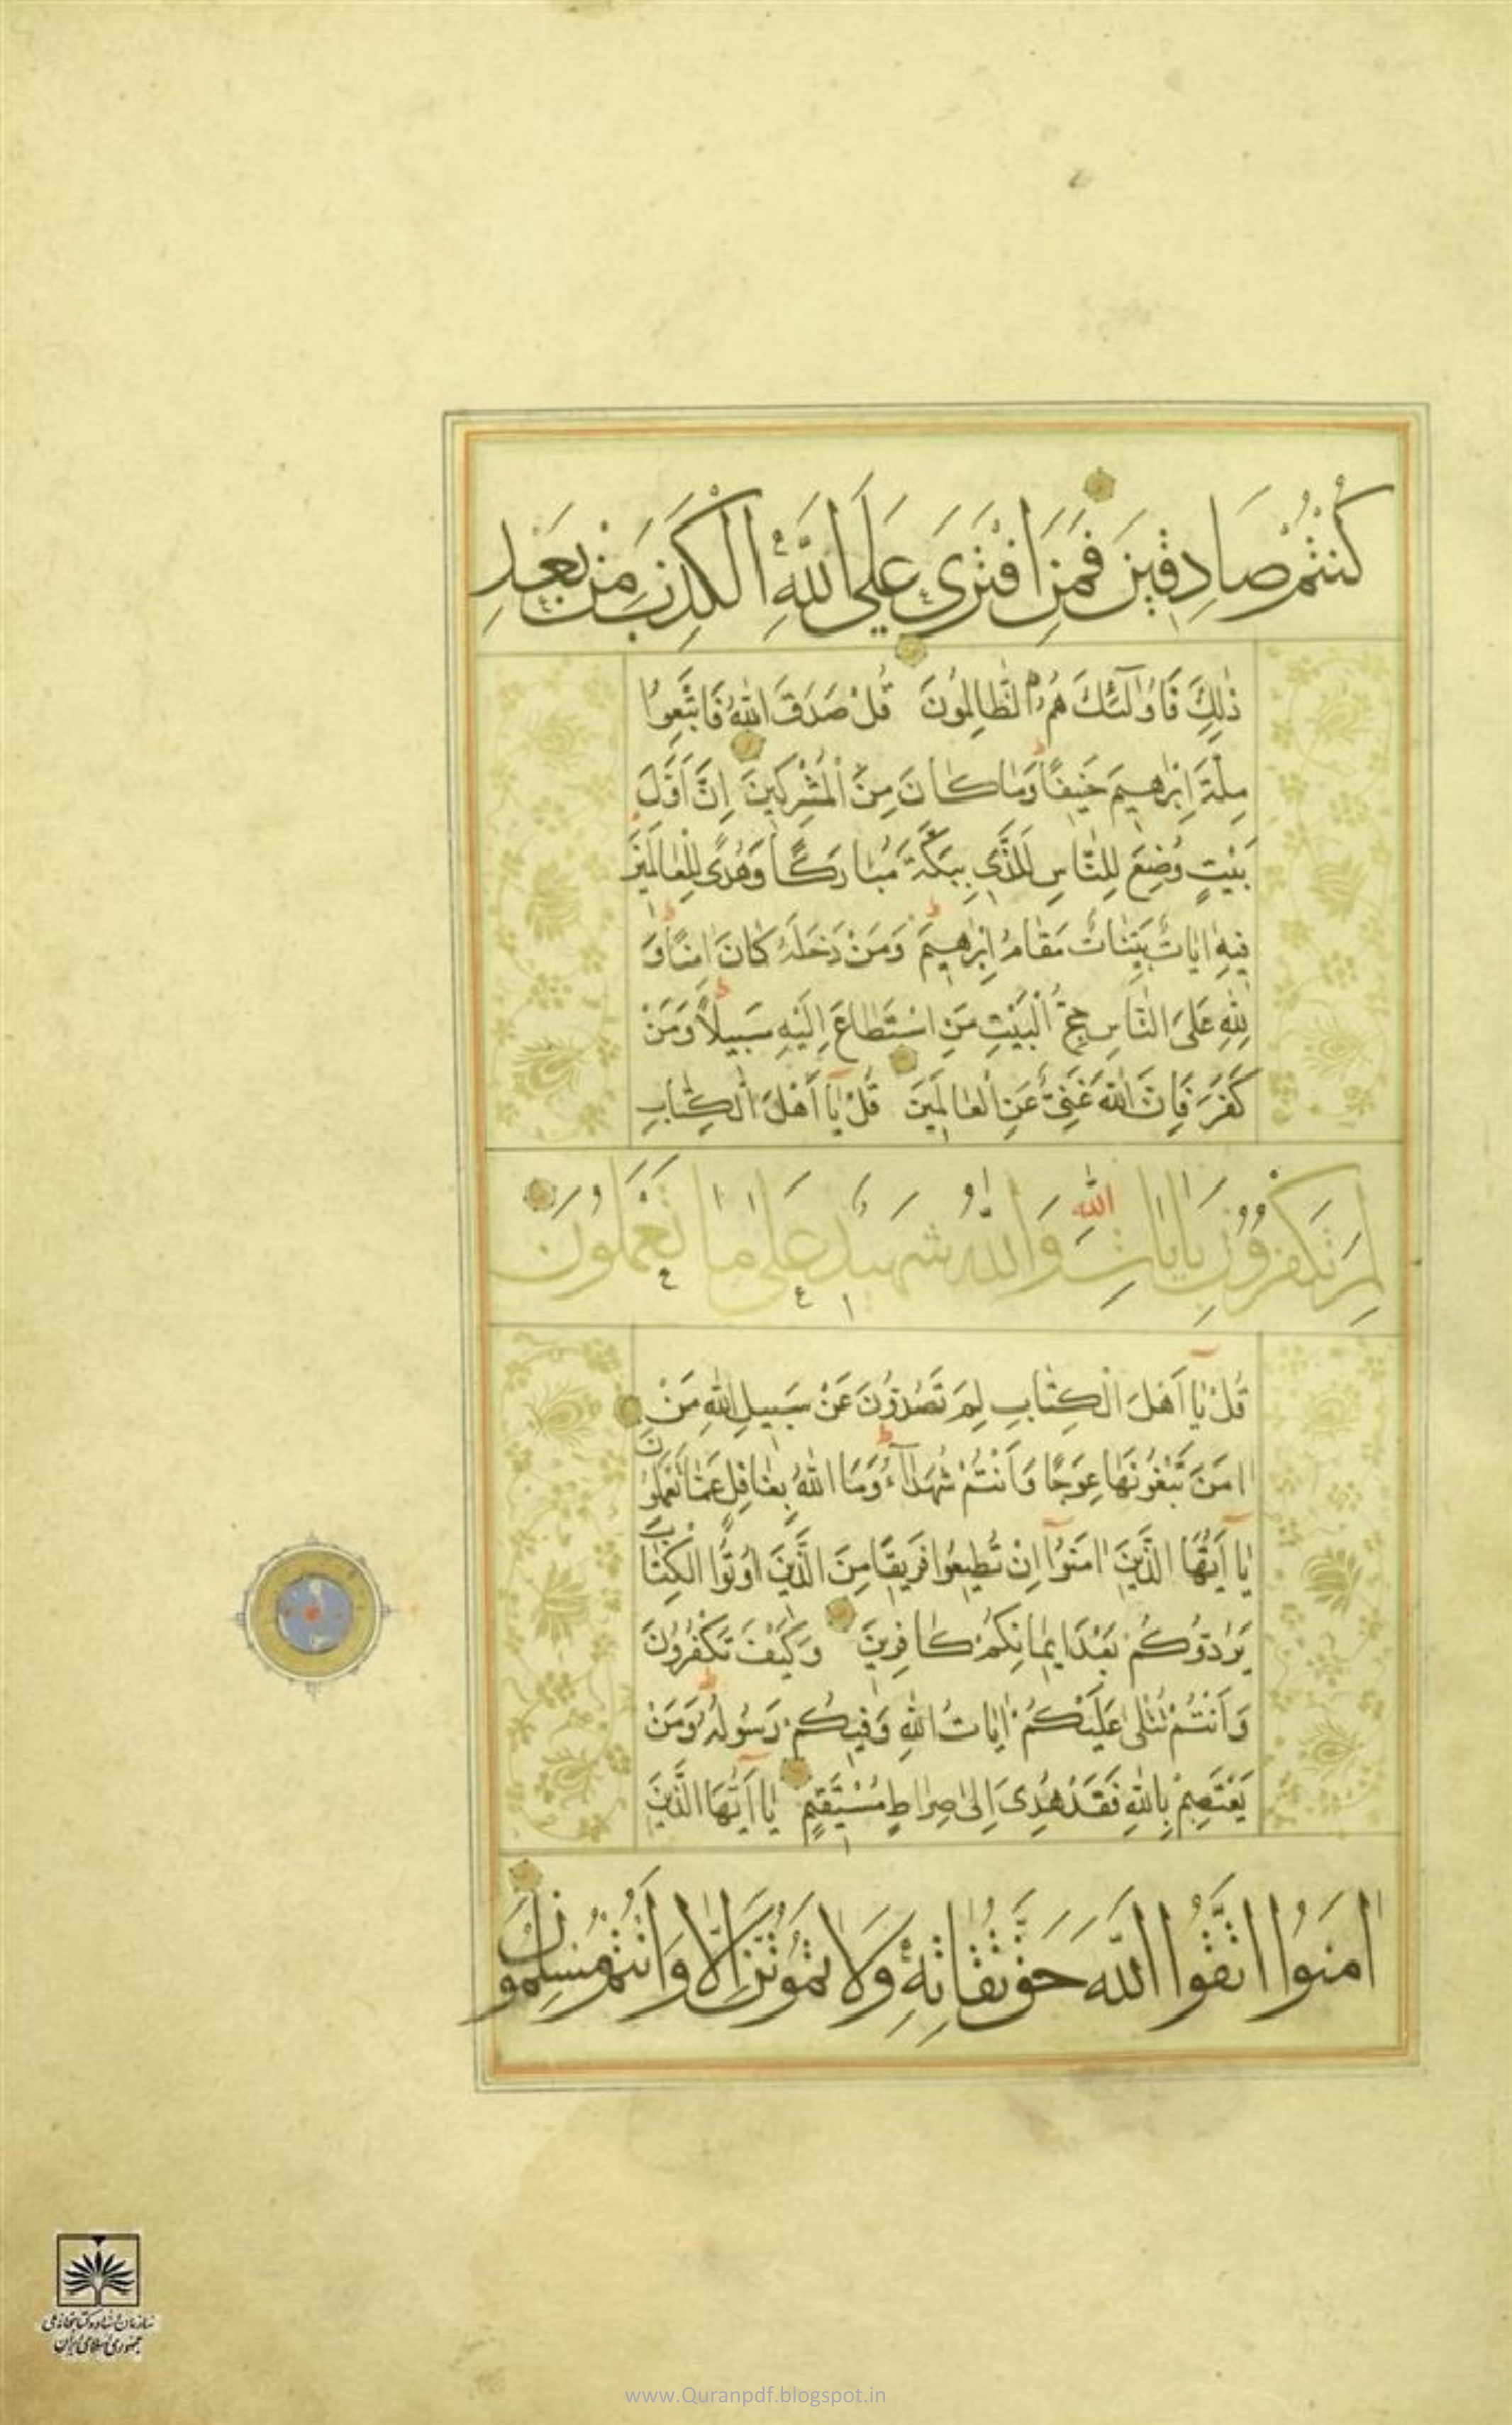 كُنْتُمْ صَادِقِينَ فَمَنِ افْتَرَىٰ عَلَى اللَّهِ الْكَذِبَ مِنْ بَعْدِ
ذٰلِكَ فَاُولٰٓئِكَ هُمُ الظَّالِمُونَ قُلْ صَدَقَ اللّٰهُ فَاتَّبِعُوا
مِلَّةَ اِبْرٰهِيمَ حَنِيفًا وَمَا كَانَ مِنَ الْمُشْرِكِينَ اِنَّ اَوَّلَ
بَيْتٍ وُضِعَ لِلنَّاسِ لَلَّذِي بِبَكَّةَ مُبَارَكًا وَهُدًى لِلْعَالَمِينَ
فِيهِ اٰيَاتٌ بَيِّنَاتٌ مَقَامُ اِبْرٰهِيمَ وَمَنْ دَخَلَهُ كَانَ اٰمِنًا وَ
لِلّٰهِ عَلَى النَّاسِ حِجُّ الْبَيْتِ مَنِ اسْتَطَاعَ اِلَيْهِ سَبِيلًا وَمَنْ
كَفَرَ فَاِنَّ اللّٰهَ غَنِيٌّ عَنِ الْعَالَمِينَ قُلْ يَا اَهْلَ الْكِتَابِ
لِمَ تَكْفُرُونَ بِاٰيَاتِ اللّٰهِ وَاللّٰهُ شَهِيدٌ عَلٰى مَا تَعْمَلُونَ
قُلْ يَا اَهْلَ الْكِتَابِ لِمَ تَصُدُّونَ عَنْ سَبِيلِ اللّٰهِ مَنْ
اٰمَنَ تَبْغُونَهَا عِوَجًا وَاَنْتُمْ شُهَدَآءُ وَمَا اللّٰهُ بِغَافِلٍ عَمَّا تَعْمَلُونَ
يَا اَيُّهَا الَّذِينَ اٰمَنُوٓا اِنْ تُطِيعُوا فَرِيقًا مِنَ الَّذِينَ اُوتُوا الْكِتَابَ
يَرُدُّوكُمْ بَعْدَ اِيمَانِكُمْ كَافِرِينَ وَكَيْفَ تَكْفُرُونَ
وَاَنْتُمْ تُتْلٰى عَلَيْكُمْ اٰيَاتُ اللّٰهِ وَفِيكُمْ رَسُولُهُ وَمَنْ
يَعْتَصِمْ بِاللّٰهِ فَقَدْ هُدِيَ اِلٰى صِرَاطٍ مُسْتَقِيمٍ يَا اَيُّهَا الَّذِينَ
اٰمَنُوا اتَّقُوا اللّٰهَ حَقَّ تُقَاتِهِ وَلَا تَمُوتُنَّ اِلَّا وَاَنْتُمْ مُسْلِمُونَ
سازمان اسناد و کتابخانه ملی
جمهوری اسلامی ایران
www.Quranpdf.blogspot.in